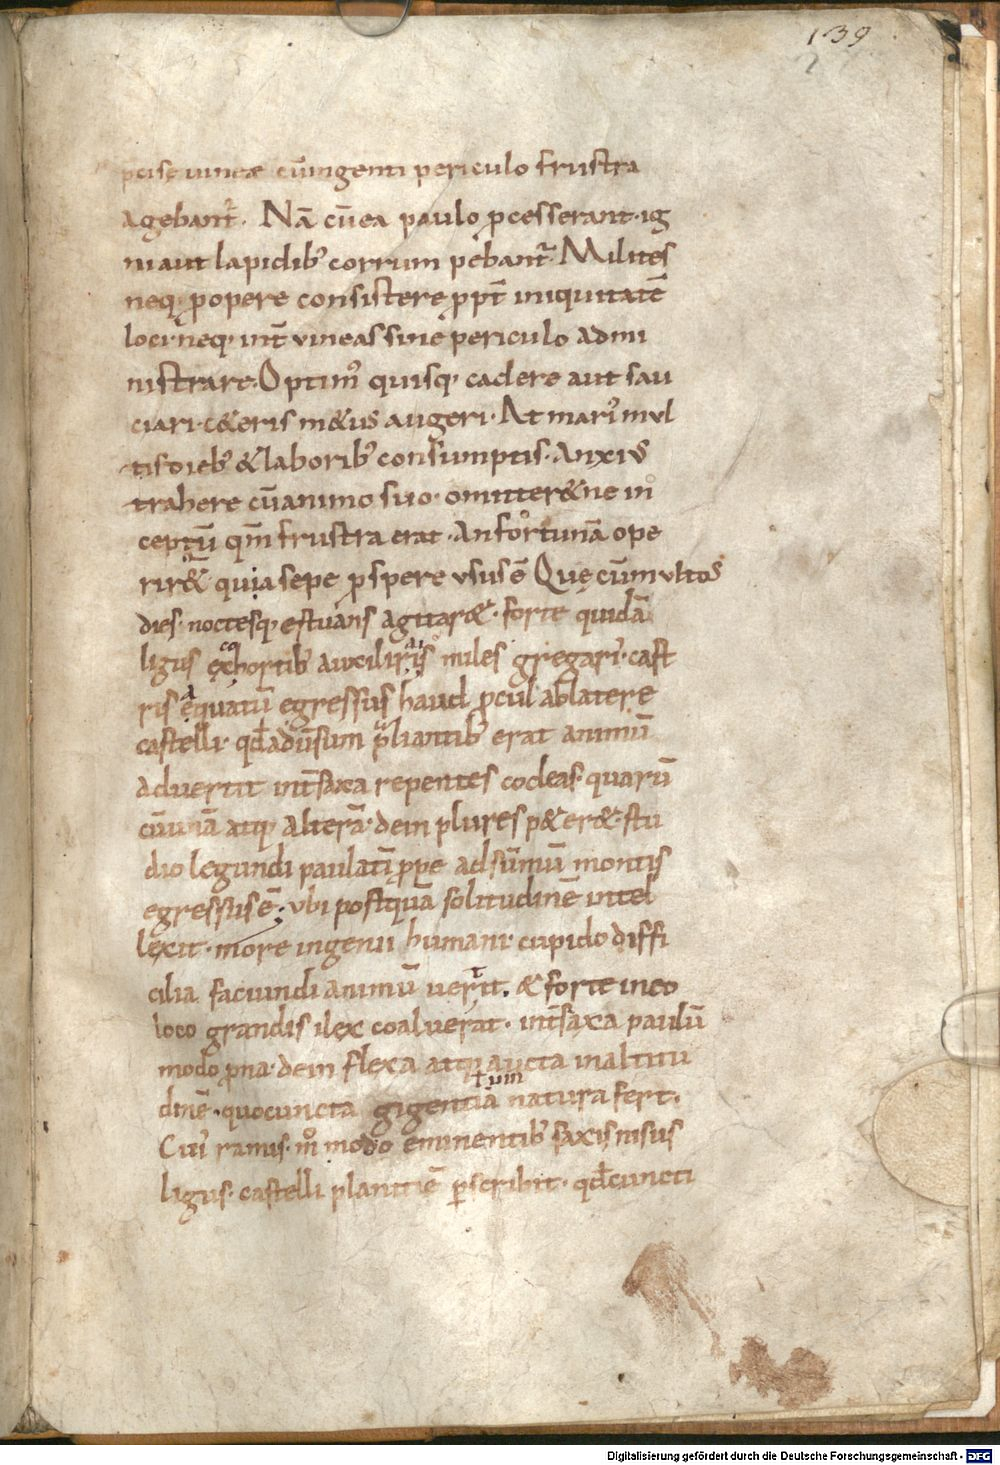 139
pcisę uineæ cū ingenti periculo frustra
agebant᷑. Nā cū ea paulo pcesserant · ig
ni aut lapidib; corrum pebant᷑. Milites
neq; p opere consistere ppt̄ iniquitatē
loci neq; int̄ uineas sine periculo admi
nistrare. Optim᷒ quisq; cadere aut sau
ciari · c&eris m&us augeri · At mari᷒ mul
tis dieb; & laborib; consumptis · Anxiu᷒
trahere cū animo suo · omitter& ne in
ceptū qm̄ frustra erat · An fortunā ope
rir& quia sepe pspere usus ē Quę cū multos
dies · noctesq; estuans agitar& · forte quidā
ligus ex cohortib; auxiliariis miles gregari᷒ · cast
ris aquatū egressus haud pcul ab latere
castelli · qd̄ aduersum pliantib; erat animū
aduertit int̄ saxa repentes cocleas · quarū
cū unā atq; alterā · dein plures p&er& · stu
dio legundi paulatī ppe ad sūmū montis
egressus ē · ubi postquā solitudinē intel
lexit · more ingenii humani · cupido diffi
cilia faciundi animū uertit · & forte in eo
loco grandis ilex coaluerat · int̄ saxa paulū
modo pna · dein flexa atq; aucta in altitu
dinē · quo cuncta gigentiā natura fert ·
ł um
Cui᷒ ramis · m° modo eminentib; saxis nisus
ligus · castelli planitiē pscribit · qd̄ cuncti
Digitalisierung gefördert durch die Deutsche Forschungsgemeinschaft - DFG